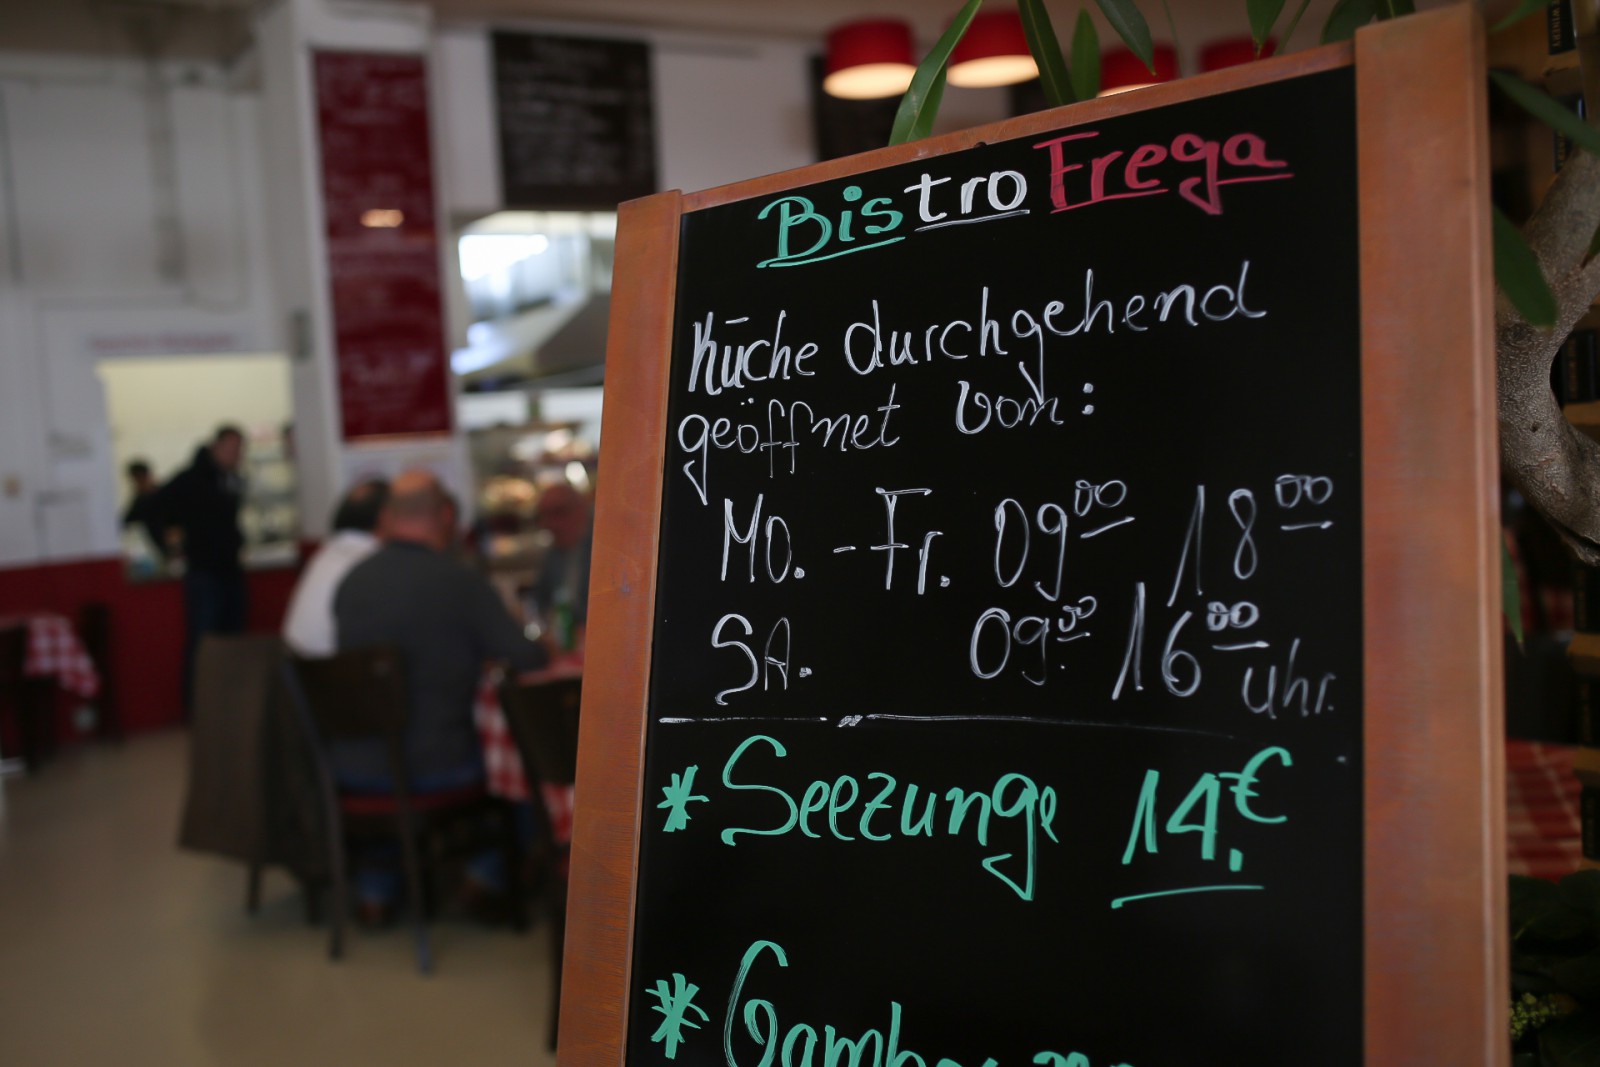 Bistro Frega
Küche durchgehend
geöffnet von:
Mo. - Fr. 09 00 18 00
SA. 09.00 16 00 uhr.
* Seezunge 14,€
*